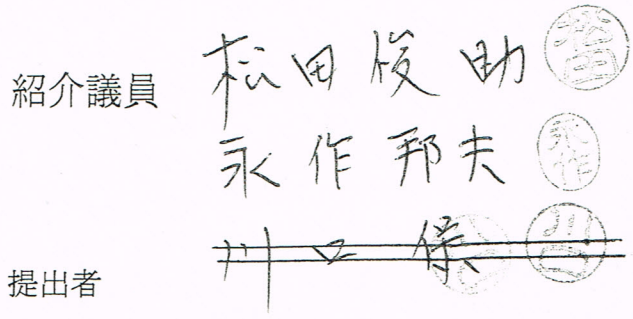 紹介議員 松田俊助 松田
永作邦夫 永作
川口保 川口
提出者